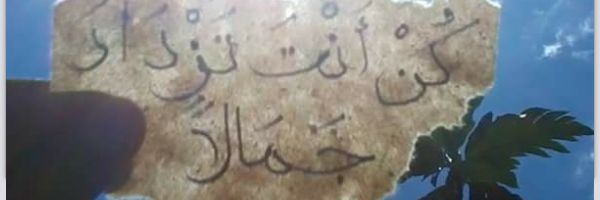 كُنْ أَنْتَ تَزْدَادَ
جَمَالاً